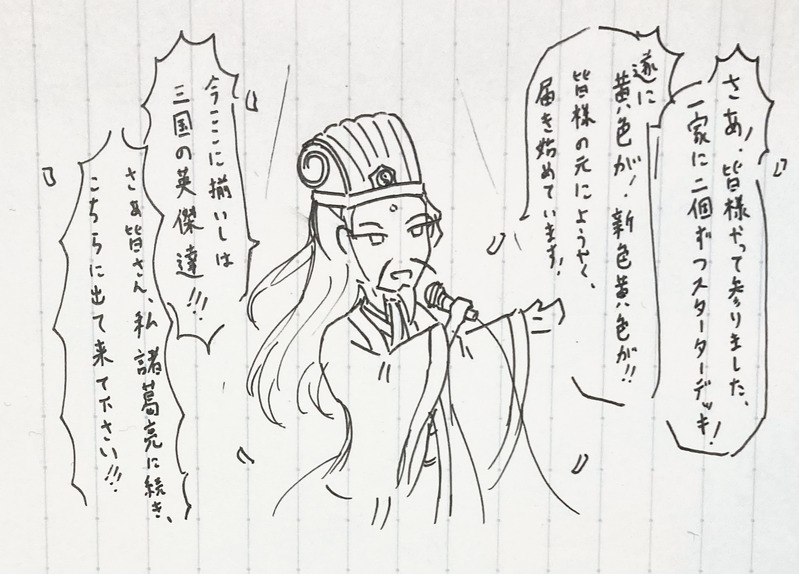 さあ、皆様やって参りました、
一家に二個ずつスターターデッキ!
遂に
黄色が!新色黄色が!!
皆様の元にようやく、
届き始めています!
今ここに揃いしは
三国の英傑達!!!
さぁ皆さん、私諸葛亮に続き、
こちらに出て来て下さい!!!